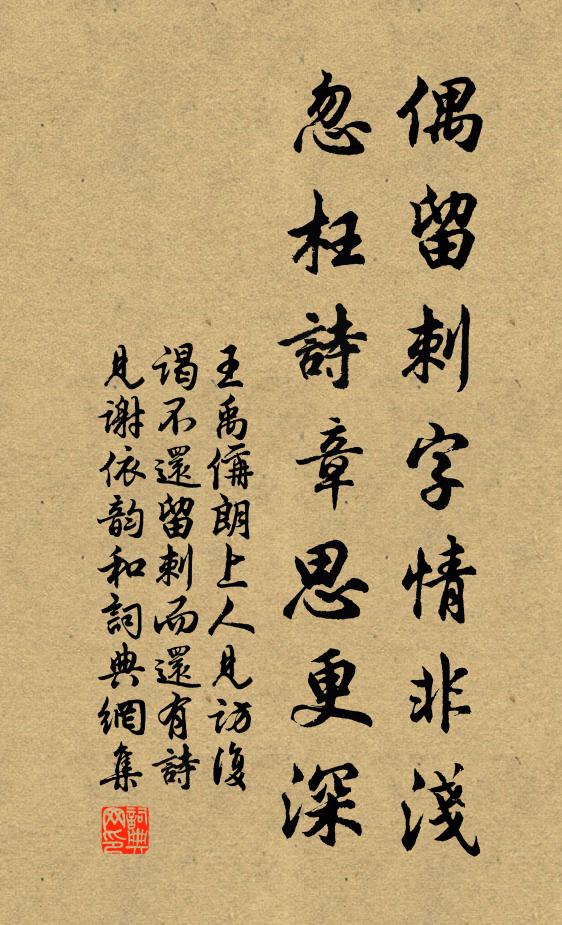 偶留刺字情非淺
忽枉詩章思更深
王禹偁朗上人見訪復
謁不還留刺而還有詩
見謝依韵和詞典網集
詞典
网印